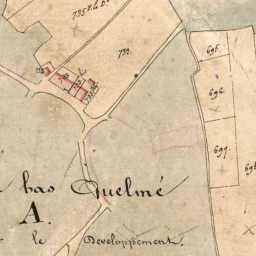 735
732.
695.
696.
697.
698
bas Quelmé
A.
le Developpement.